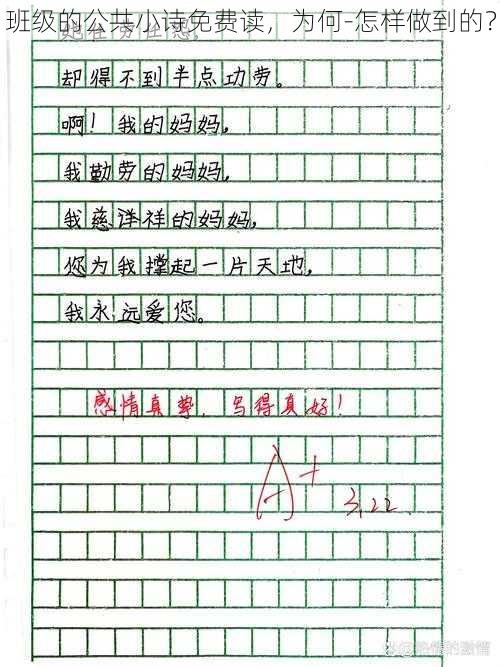 班级的公共小诗免费读，为何-怎样做到的？
却得不到半点功劳。
啊！我的妈妈，
我勤劳的妈妈，
我慈洋祥的妈妈，
您为我撑起一片天地，
我永远爱您。
感情真挚，写得真好！
A+
3.22